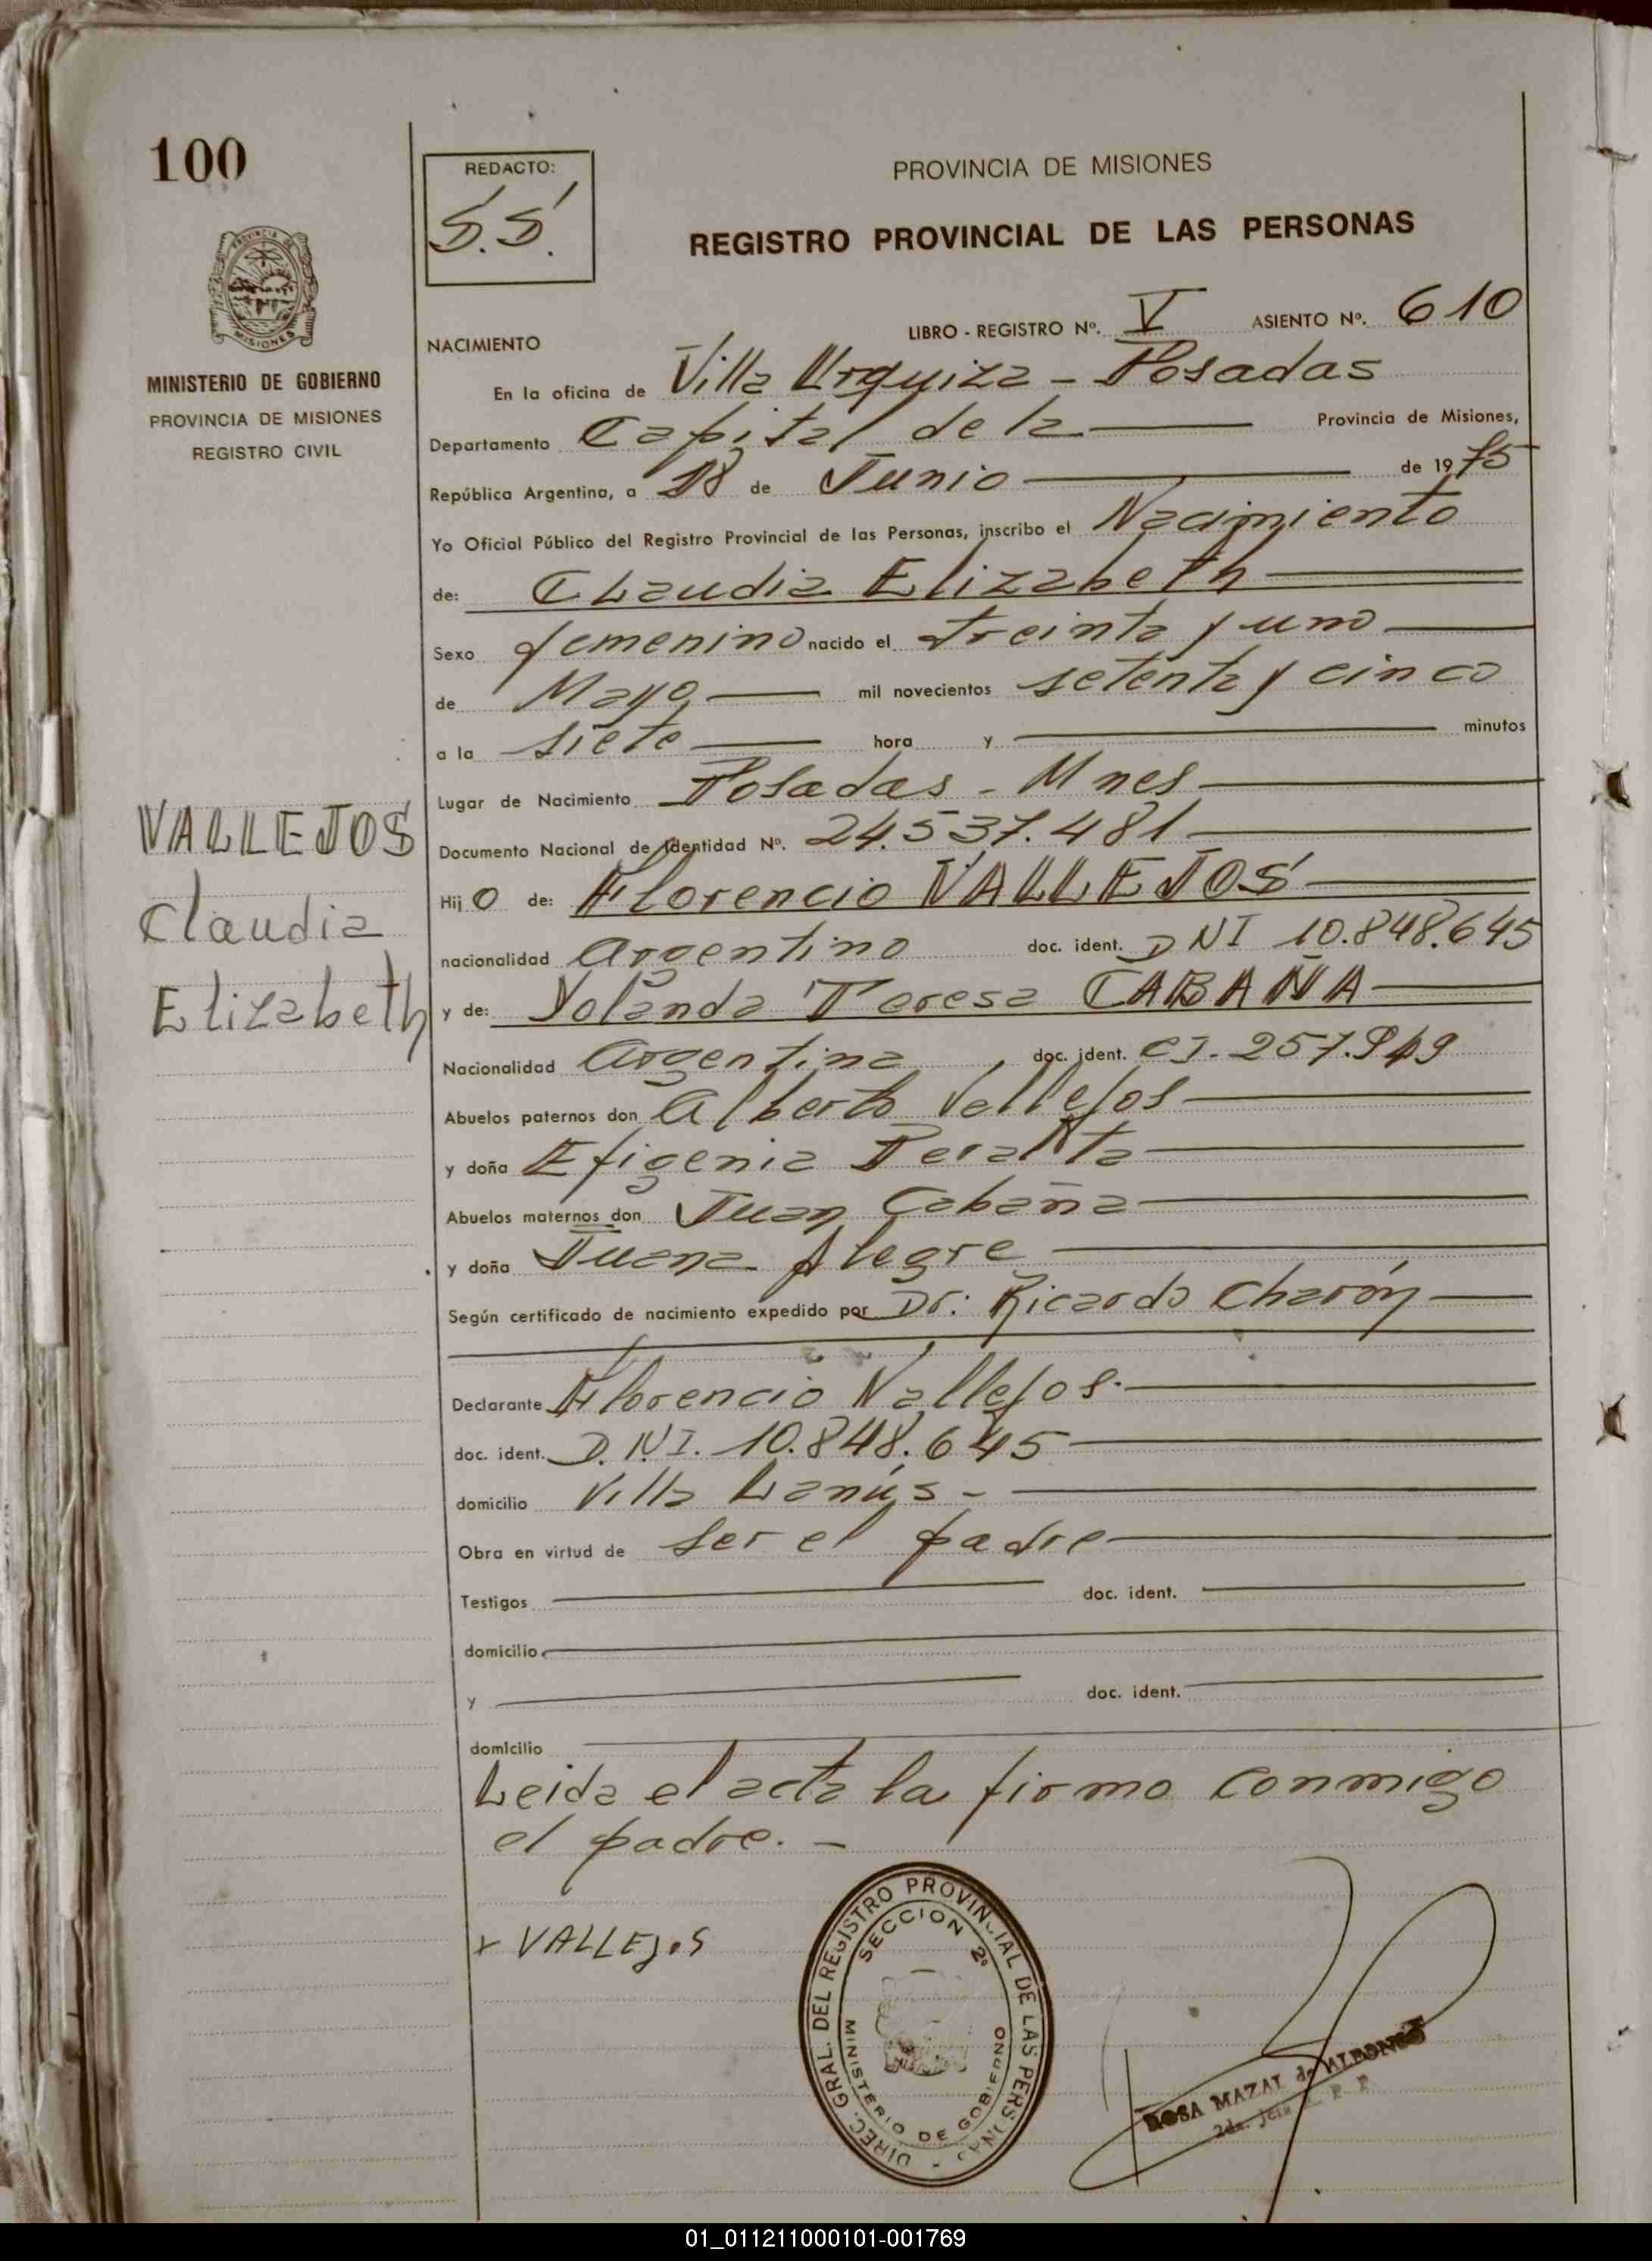 100
REDACTO:
S.S.
PROVINCIA DE MISIONES
REGISTRO PROVINCIAL DE LAS PERSONAS
PROVINCIA DE MISIONES
MINISTERIO DE GOBIERNO
PROVINCIA DE MISIONES
REGISTRO CIVIL
LIBRO - REGISTRO Nº. V ASIENTO Nº. 610
NACIMIENTO
En la oficina de Villa Urquiza - Posadas
Departamento Capital de la Provincia de Misiones,
República Argentina, a 18 de Junio de 1975
Yo Oficial Público del Registro Provincial de las Personas, inscribo el Nacimiento
de: Claudia Elizabeth
Sexo femenino nacido el treinta y uno
de Mayo mil novecientos setenta y cinco
a la siete hora y minutos
Lugar de Nacimiento Posadas - Mnes
Documento Nacional de Identidad Nº. 24.537.481
Hijo de: Florencio VALLEJOS
nacionalidad Argentino doc. ident. DNI 10.848.645
y de: Yolanda Teresa CABAÑA
Nacionalidad Argentina, doc. ident. CI. 257.949
Abuelos paternos don Alberto Vallejos
y doña Efigenia Peralta
Abuelos maternos don Juan Cabaña
y doña Juana Alegre
Según certificado de nacimiento expedido por Dr: Ricardo Charón
Declarante Florencio Vallejos.
doc. ident. D.N.I. 10.848.645
domicilio Villa Lanús -
Obra en virtud de ser el padre
Testigos doc. ident.
domicilio
y doc. ident.
domicilio
Leida el acta la firmo conmigo
el padre. -
VALLEJOS
Claudia
Elizabeth
x VALLEJOS
DIREC. GRAL. DEL REGISTRO PROVINCIAL DE LAS PERSONAS -
SECCION 2º
MINISTERIO DE GOBIERNO
ROSA MAZAL de
2da. Jefa
01_011211000101-001769